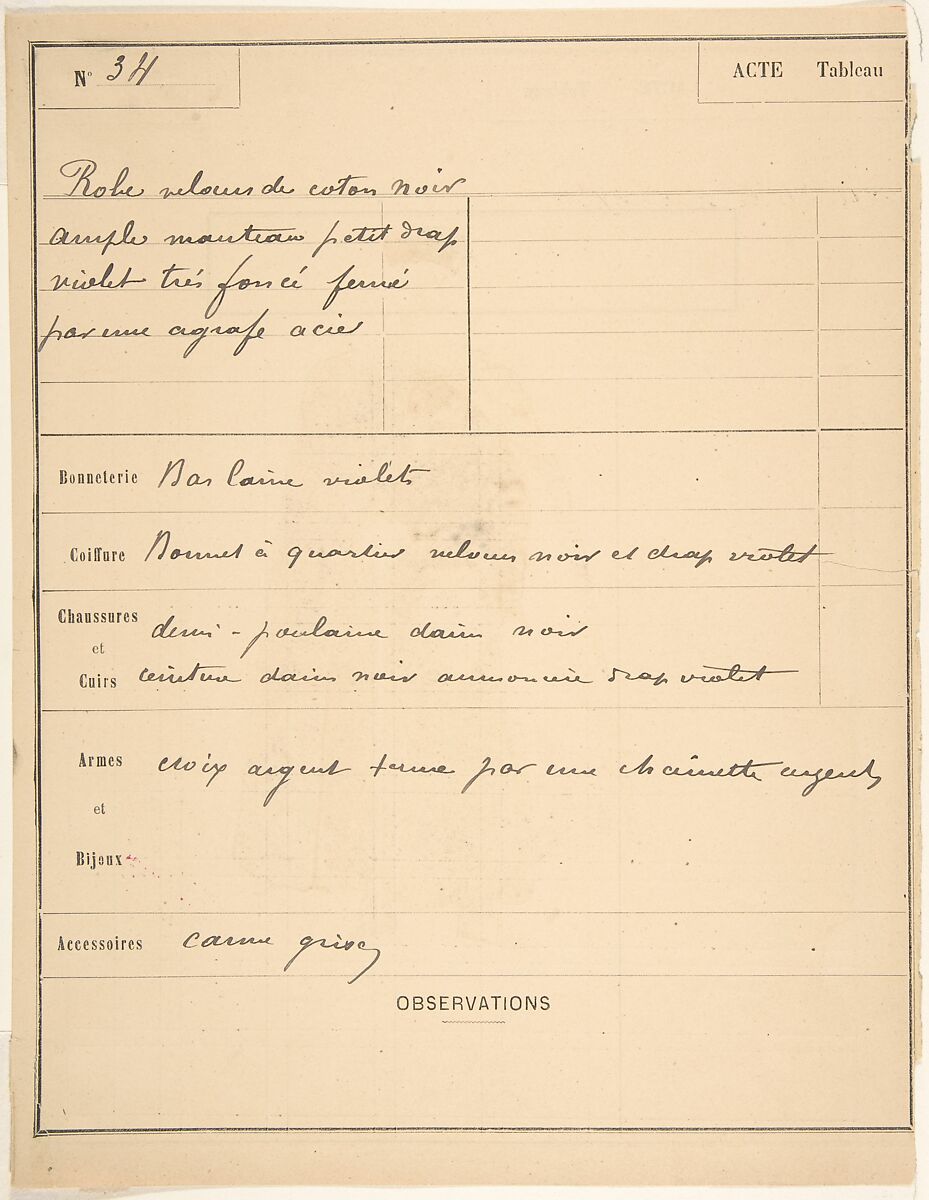 N° 34
ACTE Tableau
Robe velours de coton noir
ample manteau petit drap
violet très foncé fermé
par une agrafe acier
Bonneterie Bas laine violets
Coiffure Bonnet à quartier velours noir et drap violet
Chaussures
et
Cuirs
demi-poulaine daim noir
ceinture daim noir aumonière drap violet
Armes
et
Bijoux
croix argent par une chainette argent
Accessoires canne grise
OBSERVATIONS